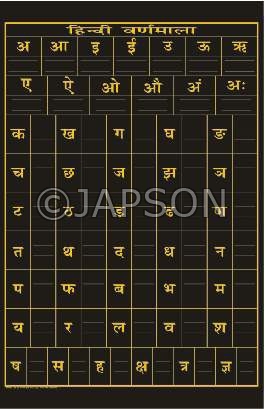 हिन्दी वर्णमाला
अ आ इ ई उ ऊ ऋ
ए ऐ ओ औ अं अः
क ख ग घ ङ
च छ ज झ ञ
©JAPSON
ट ठ ड ढ ण
त थ द ध न
प फ ब भ म
य र ल व श
ष स ह क्ष त्र ज्ञ